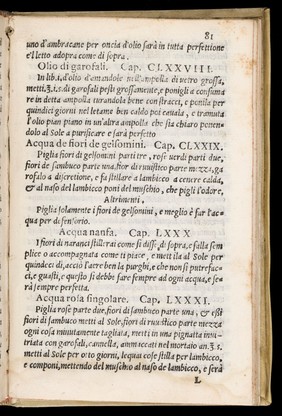 81
uno d'ambracane per oncia d'olio sarà in tutta perfettione
e'l letto adopra come di sopra.
Olio di garofali. Cap. CLXXVIII.
In lib.i. d'olio d'amandole nell'ampolla di vetro grossa,
metti ℥.i. di garofali pesti grossamente, e ponigli a consuma
re in detta ampolla turandola bene con stracci, e ponila per
quindici giorni nel letame ben caldo poi cavala, e tramuta
l'olio pian piano in un'altra ampolla che sia chiaro ponen-
dolo al Sole a purificare e sarà perfetto
Acqua de fiori de gelsomini. Cap. CLXXIX.
Piglia fiori di gelsomini parti tre, rose verdi parti due,
fiori de sambuco parte una, fior di ruuistico parte mezza, ga
rofali a discretione, e fa stillare a lambicco a cenere calda,
& al naso del lambicco poni del muschio, che pigli l'odore,
Altrimenti.
Piglia solamente i fiori de gelsomini, e meglio è far l'ac-
qua per di
Acqua nanfa. Cap. LXXX
I fiori di naranci stillerai come si disse di sopra, e falla sem
plice o accompagnata come ti piace, e metti la al Sole per
quindeci dì, acciò l'aere ben la purghi, e che non si putrefac-
ci, e guasti, e questo si debbe fare sempre ad ogni acqua, e se
rà sempre perfetta.
Acqua rosa singolare. Cap. LXXXI.
Piglia rose parte due, fiori di sambuco parte una, &
fiori di sambuco metti al Sole, fiori di ruuistico parte mezza
ogni cosa minutamente tagliata, metti in una pignatta inui-
triata con garofali, cannella, ammaccati nel mortaio an. ℥.s.
metti al Sole per otto giorni, lequai cose stilla per lambicco,
e componi, mettendo del muschio al naso de lambicco, e serà
L